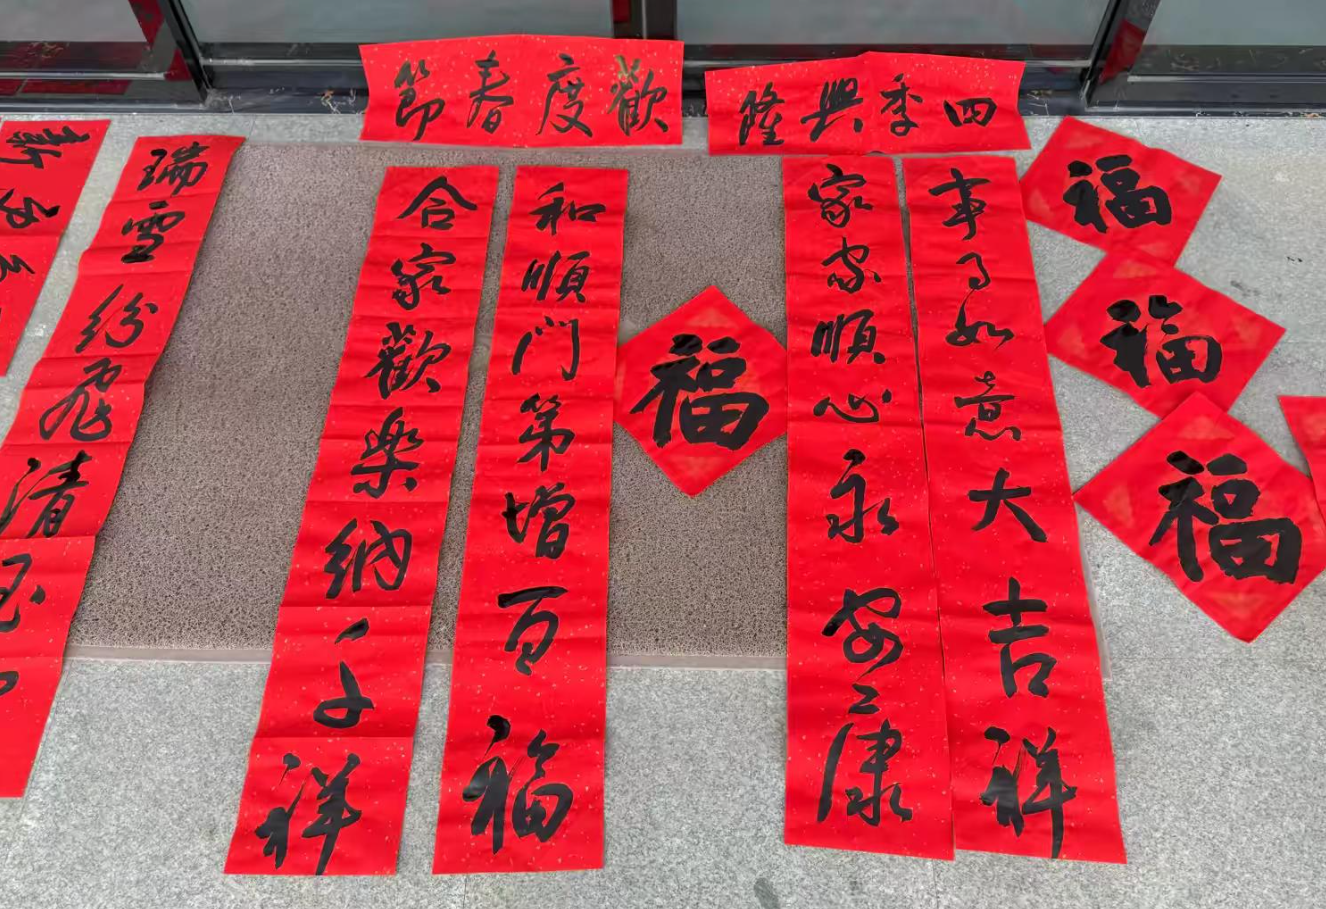 四季興隆
歡度春節
事事如意大吉祥
家家順心永安康
和順門第增百福
合家歡樂納千祥
瑞雪紛飛清
福
福
福
福